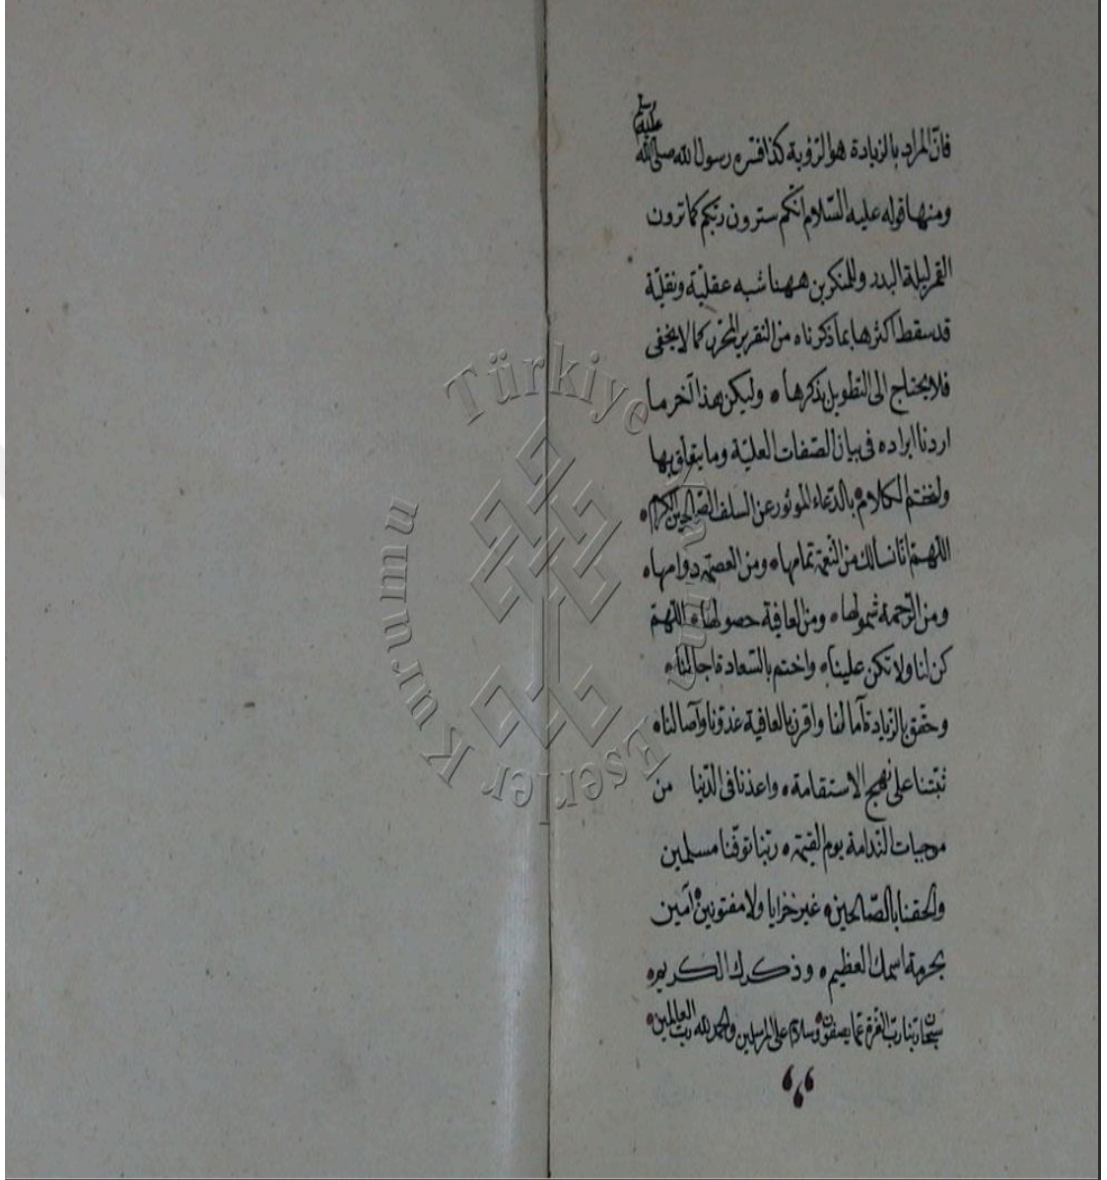 فانّ المراد بالزيادة هو الرّؤية كذا فسّره رسول الله صلى الله عليه وسلم
ومنها قوله عليه السّلام انّكم سترون ربّكم كما ترون
القمر ليلة البدر وللمنكرين ههنا شبه عقليّة ونقليّة
قد سقط اكثرها بما ذكرناه من التقرير المحرّر كما لا يخفى
فلا يحتاج الى التطويل بذكرها ٥ وليكن هذا آخر ما
اردنا ايراده فى بيان الصّفات العليّة وما يتعلق بها
ولنختم الكلام ٥ بالدّعاء الموثور عن السلف الصّالحين الكرام ٥
اللهمّ انّا نسألك من النّعمة تمامها ٥ ومن العصمة دوامها ٥
ومن الرّحمة شمولها ٥ ومن العافية حصولها ٥ اللهمّ
كن لنا ولا تكن علينا ٥ واختم بالسّعادة اجالنا ٥
وحقّق بالزيادة آمالنا واقرن بالعافية غدوّنا وآصالنا ٥
ثبّتنا على نهج الاستقامة ٥ واعذنا فى الدّنيا من
موجبات النّدامة يوم القيمة ٥ ربّنا توفّنا مسلمين
والحقنا بالصّالحين ٥ غير خزايا ولا مفتونين ٥ آمين
بحرمة اسمك العظيم ٥ وذكرك الكريم ٥
سبحان ربّنا ربّ العزة عمّا يصفون ٥ وسلام على المرسلين والحمد لله ربّ العالمين ٥
Türkiye Yazma Eserler Kurumu